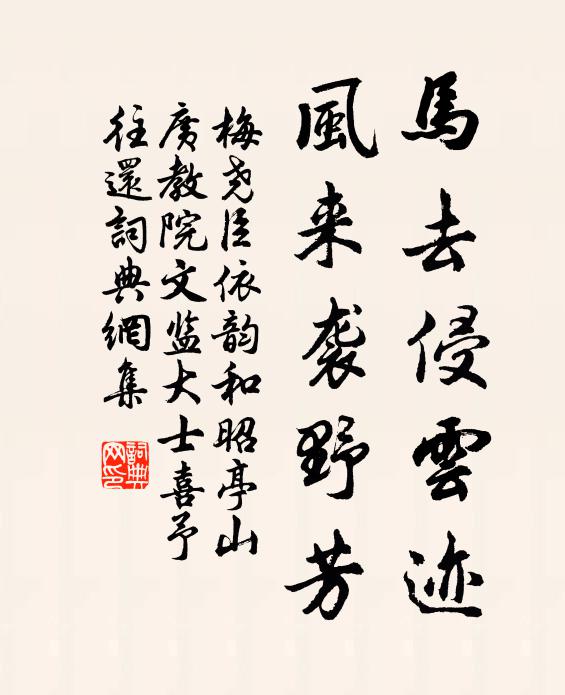 馬去侵雲迹
風来袭野芳
梅尧臣依韵和昭亭山
廣教院文监大士喜予
往還詞典網集
詞典网印